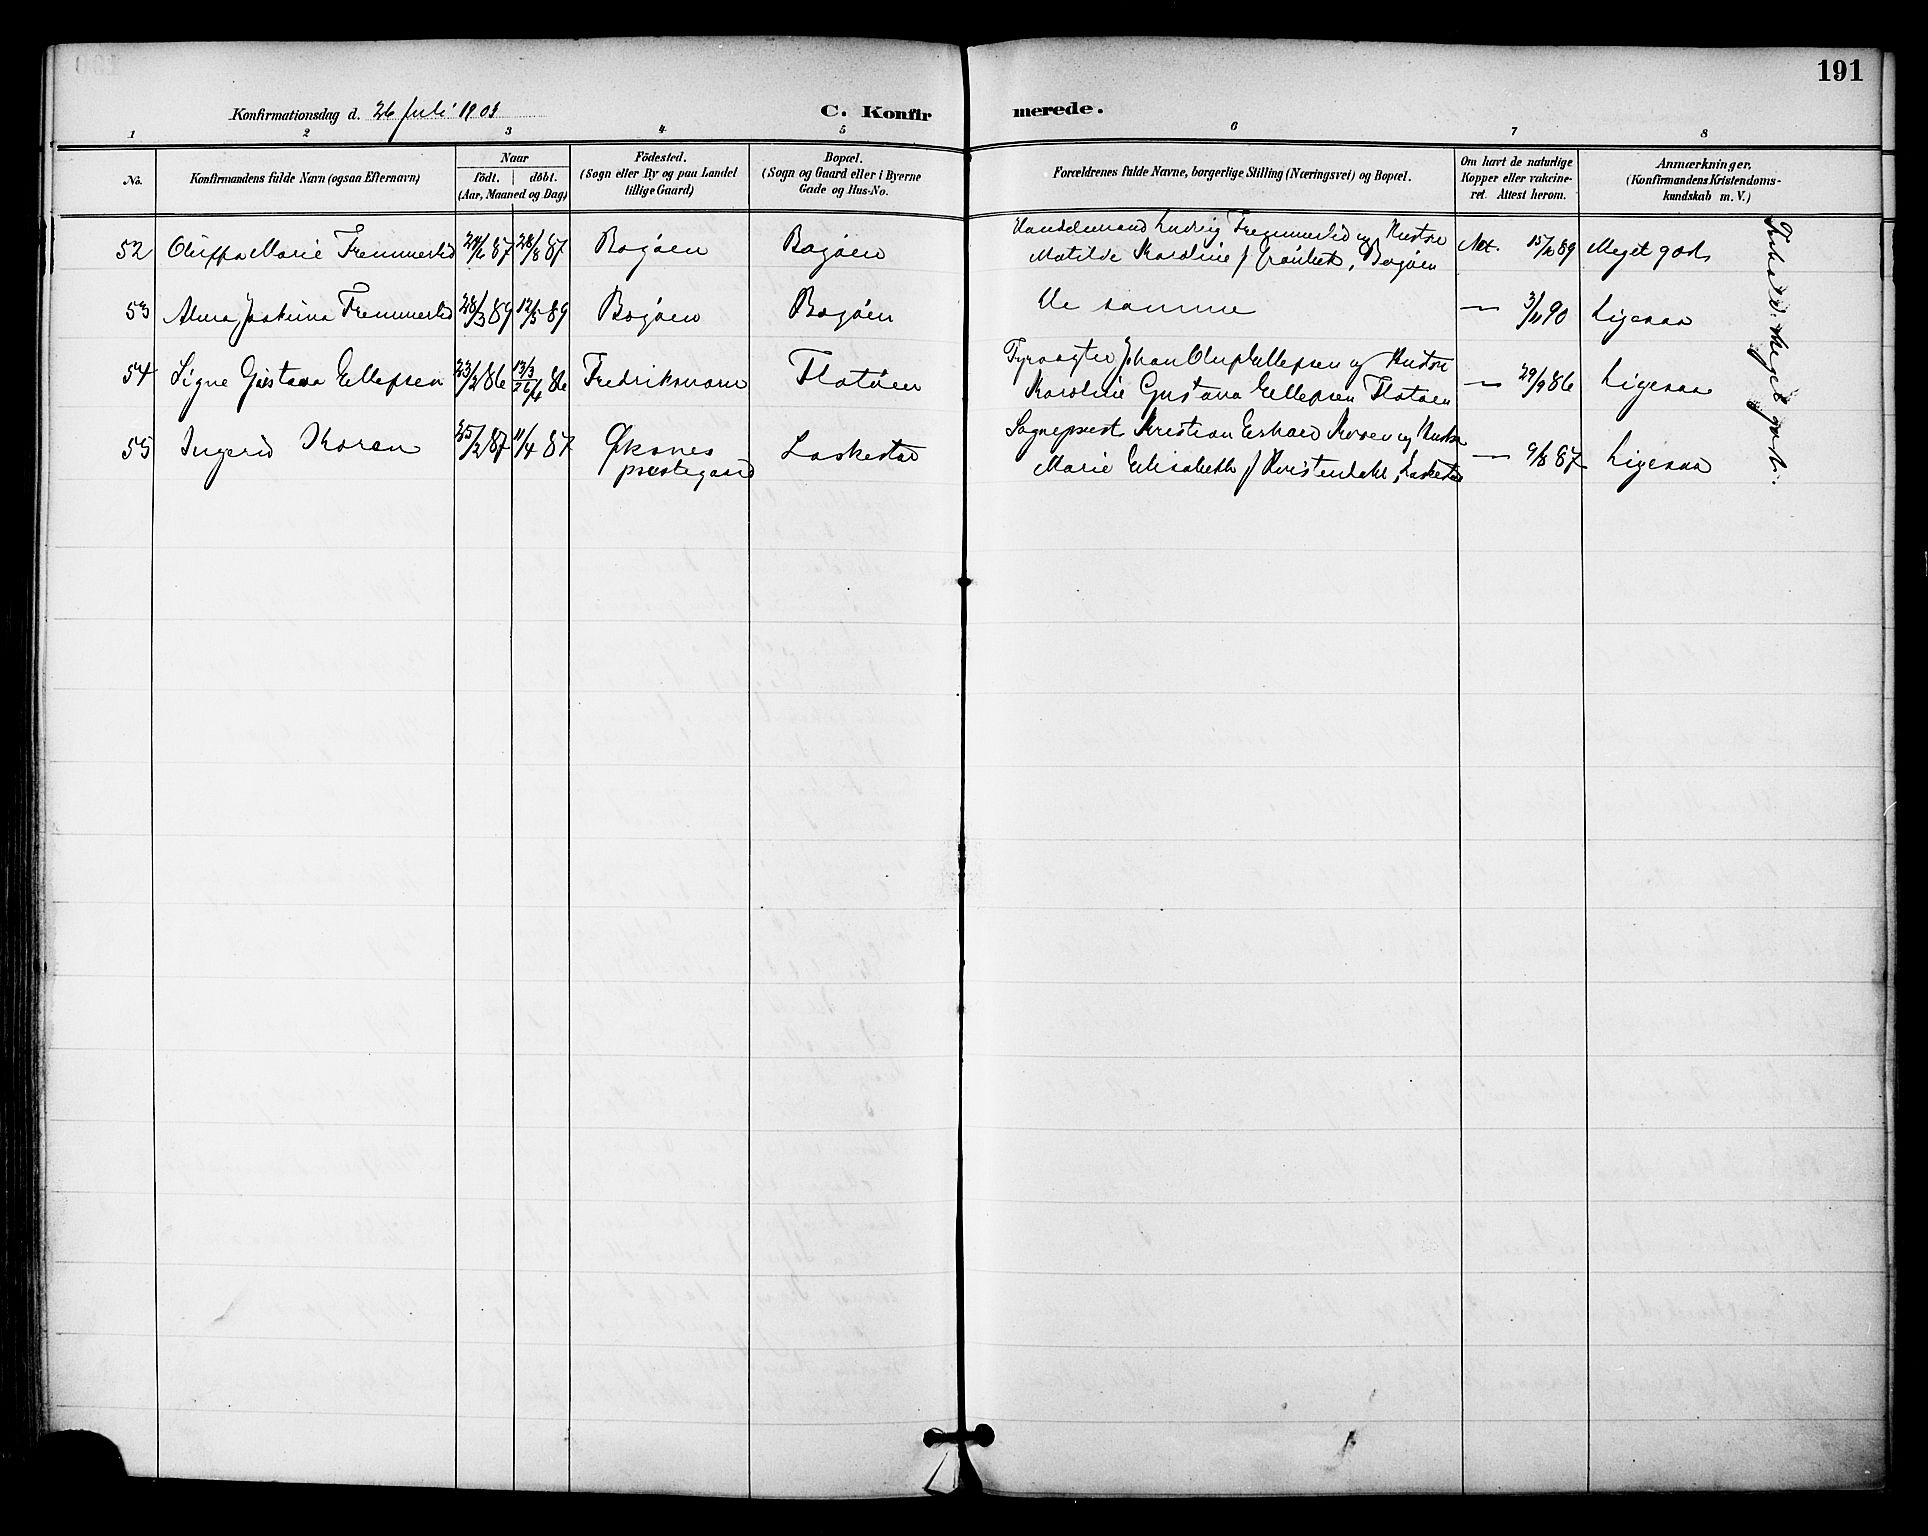 191
Konfirmationsdag d. 26 Juli 1903
C. Konfir merede.
1 2 3 4 5 6 7 8
No.
Konfirmandens fulde Navn (ogsaa Efternavn)
Naar
födt. döbt.
(Aar, Maaned og Dag)
Födested.
(Sogn eller By og paa Landet
tillige Gaard)
Bopæl.
(Sogn og Gaard eller i Byerne
Gade og Hus-No.
Forældrenes fulde Navne, borgerlige Stilling (Næringsvei) og Bopæl.
Om havt de naturlige
Kopper eller vakcine-
ret. Attest herom.
Anmærkninger.
(Konfirmandens Kristendoms-
kundskab m. V.)
52 Oluffa Marie Fremmerlid 24/6 87 28/8 87 Bogøen Bogøen Handelsmand Ludvig Fremmerlid og Hustru
Matilde Karoline f Grönbek, Bogøen Att. 15/2 89 Meget godt
53 Alma Joakima Fremmerlid 28/3 89 12/5 89 Bogøen Bogøen De samme — 3/11 90 Ligesaa
54 Signe Gustava Ellefsen 23/2 86 13/3 26/4 86 Fredriksnæs Flatøen Fyrvogter Johan Oluf Ellefsen og Hustru
Karoline Gustava Ellefsen Flatøen — 29/9 86 Ligesaa
55 Ingerid Koren 25/2 87 11/4 87 Øksnes
præstegaard Laskestad Sognepræst Kristian Erhard Koren og Hustru
Marie Elisabeth f Kristendahl, Laskestad — 9/8 87 Ligesaa
Forhold: Meget godt.